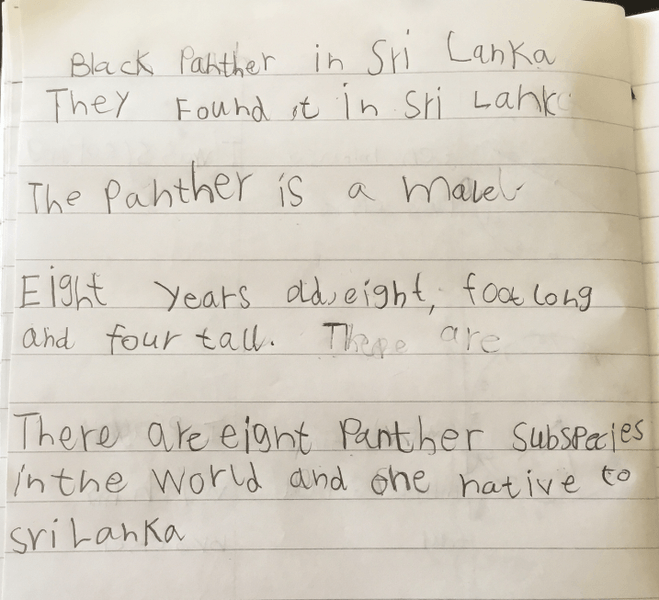 Black Panther in Sri Lanka
They Found it in Sri Lank
The Panther is a male
Eight years old, eight, foot long
and four tall. There are
There are eight Panther Subspecies
in the World and one native to
Sri Lanka